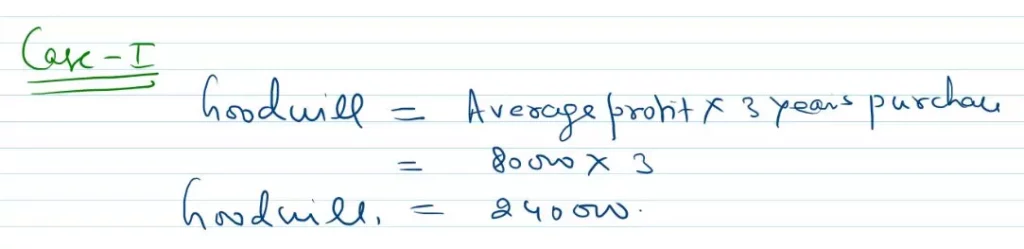 Case - I
Goodwill = Average profit × 3 years purchase
= 80000 × 3
Goodwill. = 240000.